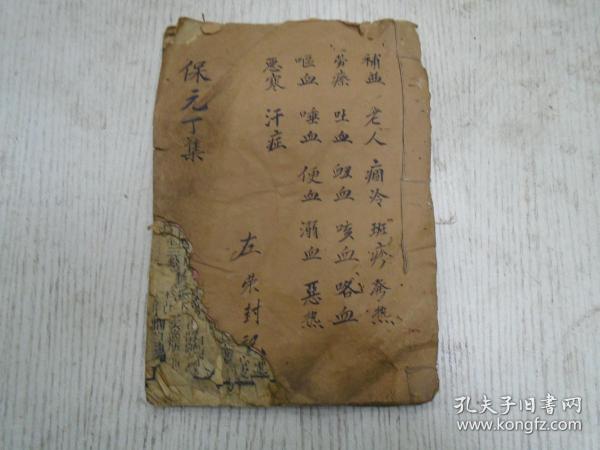 補益 老人 痼冷 斑疹 發熱
勞瘵 吐血 衄血 咳血 咯血
嘔血 唾血 便血 溺血 惡熱
惡寒 汗症
左 榮封
保元丁集
孔夫子旧書网
www.kongfz.com